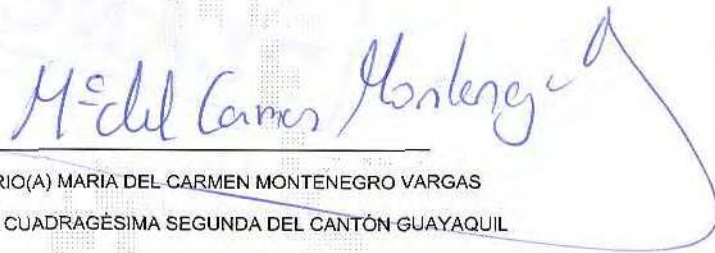 Mª del Carmen Montenegro
RIO(A) MARIA DEL CARMEN MONTENEGRO VARGAS
CUADRAGÉSIMA SEGUNDA DEL CANTÓN GUAYAQUIL